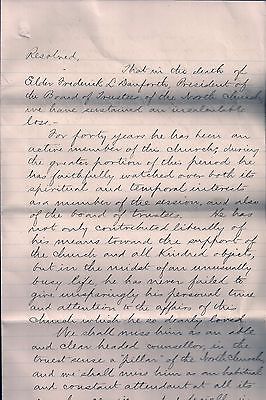 Resolved,
That in the death of
Elder Frederick L Danforth, President of
the Board of Trustees of the North Church,
we have sustained an incalculable
loss—
For forty years he has been an
active member of this Church, during
the greater portion of this period he
has faithfully watched over both its
spiritual and temporal interests
as a member of the session, and also
of the board of trustees. He has
not only contributed liberally of
his means toward the support of
the church and all kindred objects,
but in the midst of an unusually
busy life he has never failed to
give unsparingly his personal time
and attention to the affairs of the
Church which he so dearly loved.
We shall miss him as an able
and clear headed counsellor, in the
truest sense a "pillar" of the North Church,
and we shall miss him as an habitual
and constant attendant at all its